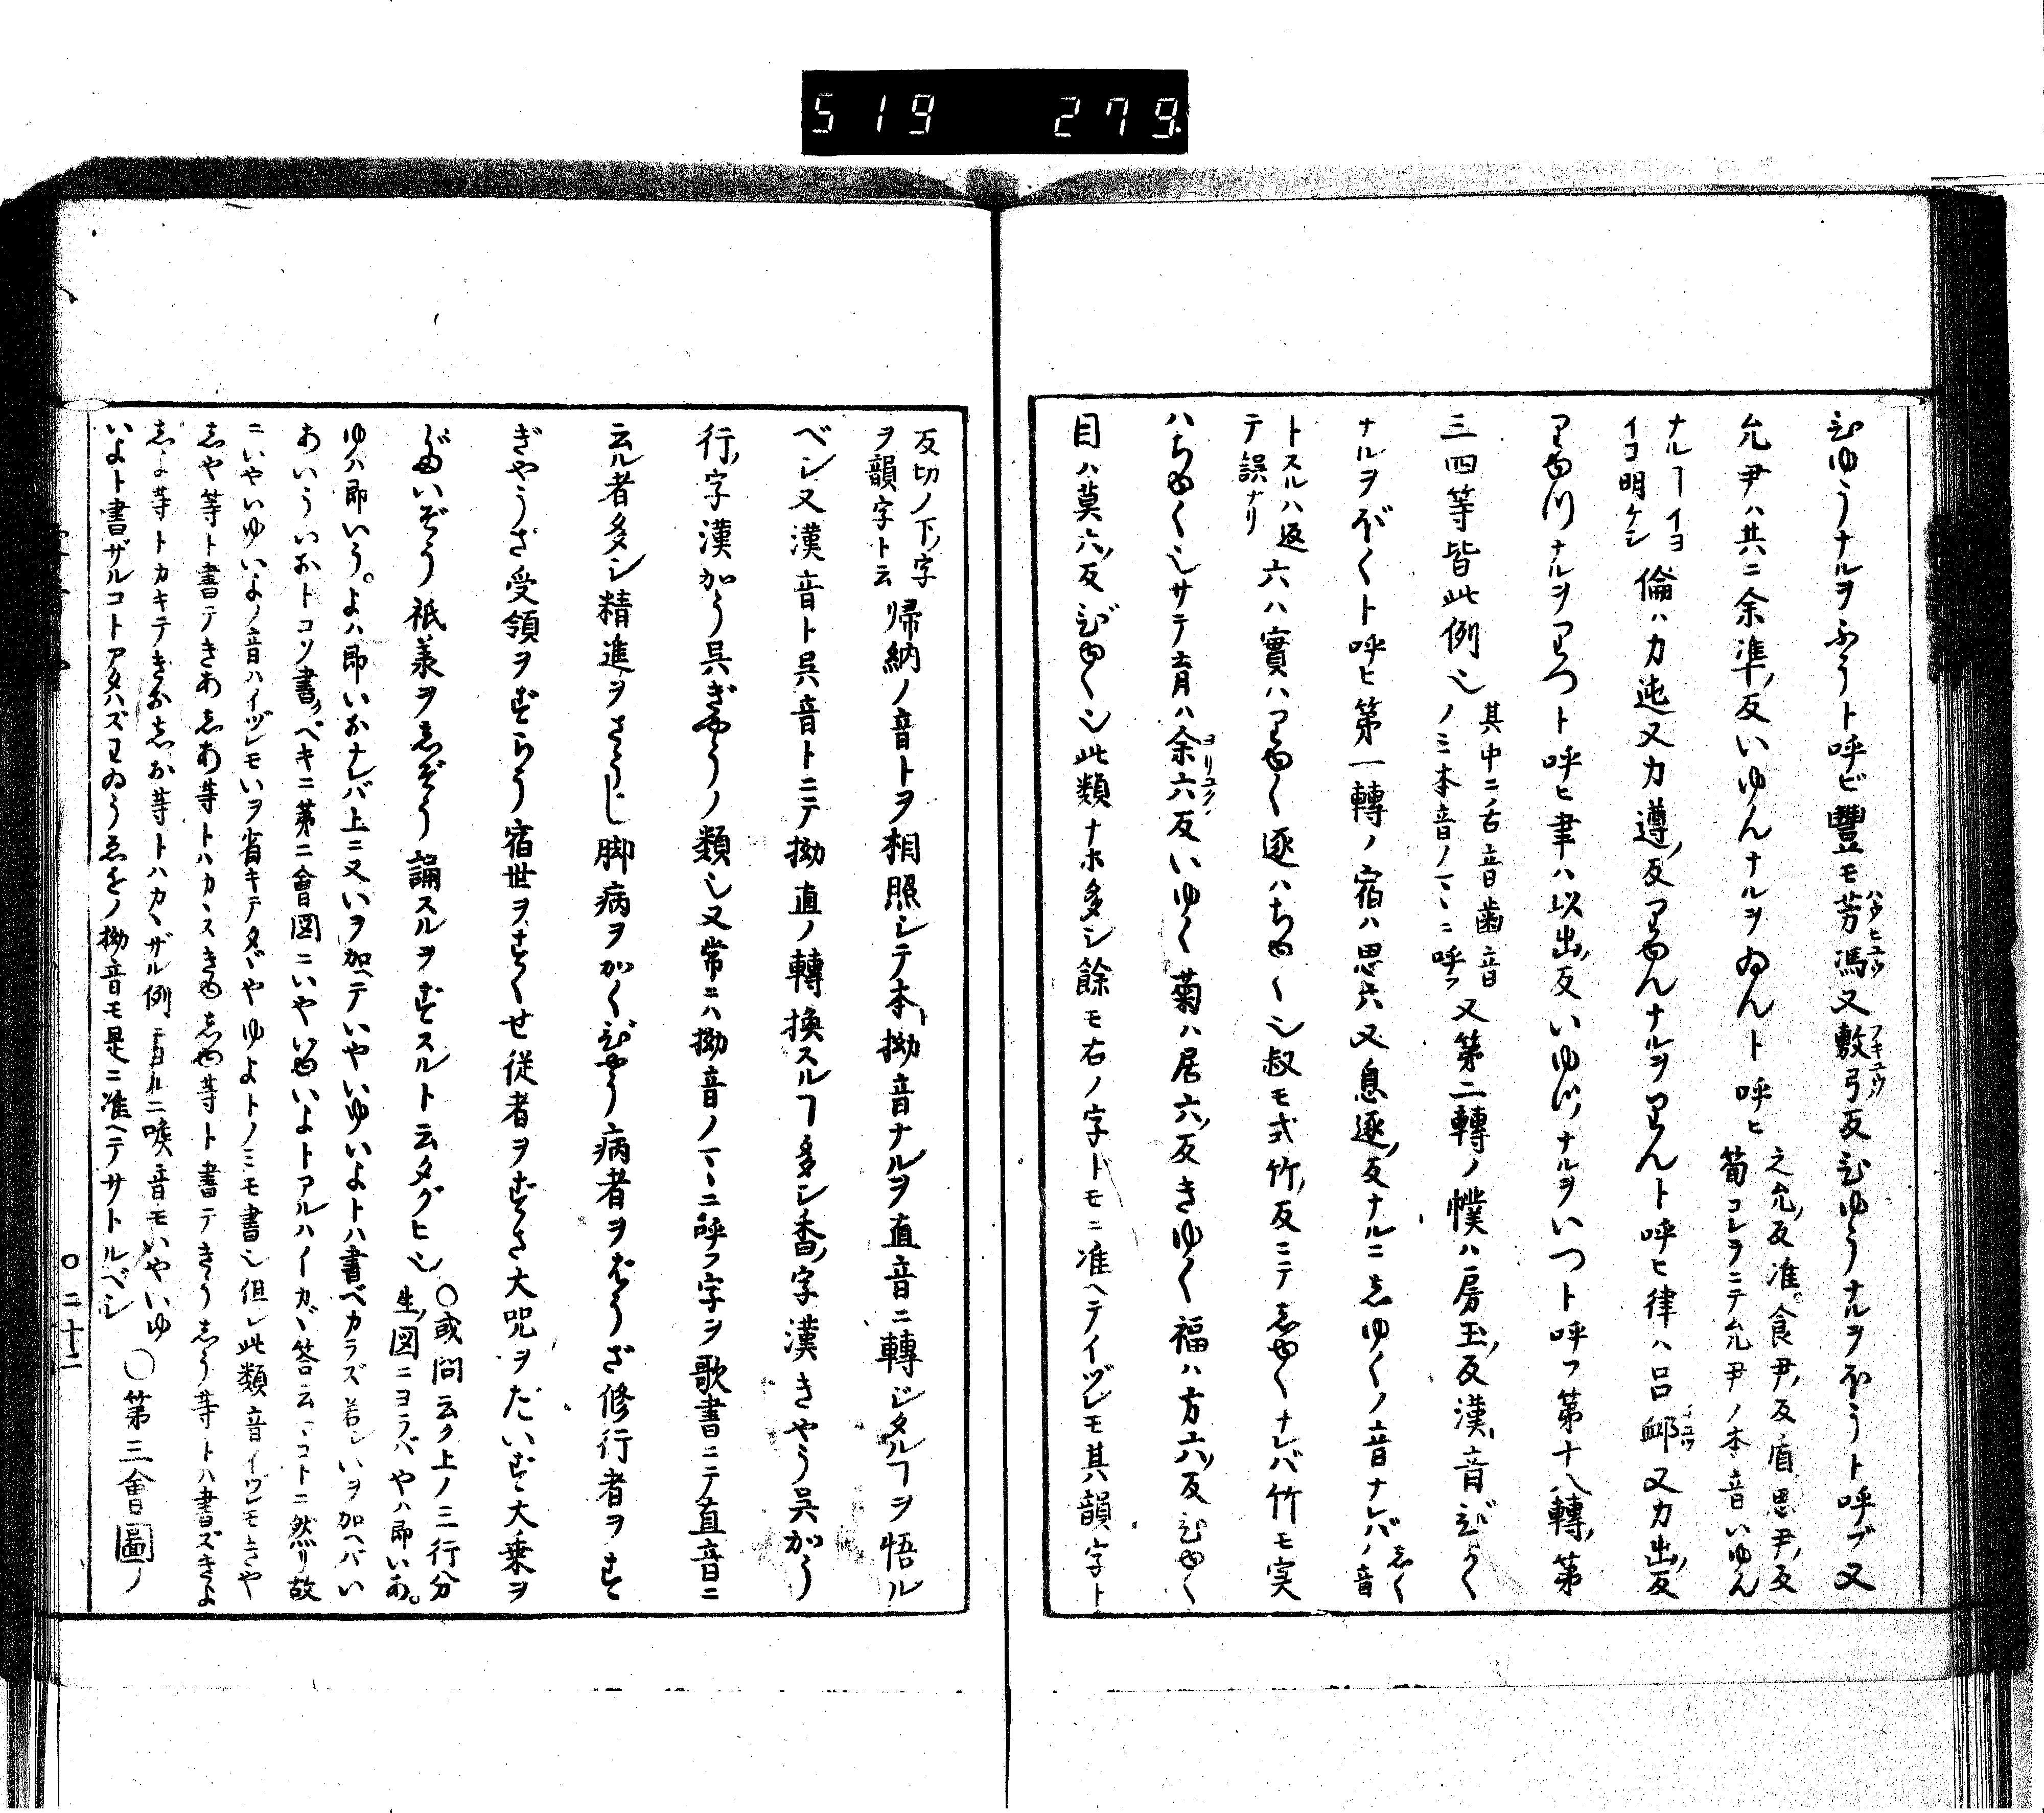 519 279.
ひゆうナルヲふうト呼ビ豐モ芳馮又敷弓反ひゆうナルヲほうト呼ブ又
ハウヒユウ
フキユウ
允尹ハ共ニ余準ノ反いゆんナルヲゐんト呼ヒ
之允ノ反准。食尹ノ反盾思尹ノ反
筍コレラニテ允尹ノ本音いゆん
ナルヿイヨ
イヨ明ケシ
倫ハ力迍又力遵ノ反りゆんナルヲりんト呼ヒ律ハ呂卹又力出ノ反
りゆつナルヲりつト呼ヒ聿ハ以出ノ反いゆつナルヲいつト呼フ第十八轉ノ第
三四等皆此例也
其中ニ舌音歯音
ノミ本音ノマヽニ呼フ
又第二轉ノ幞ハ房玉ノ反漢ノ音びよく
ナルヲぼくト呼ヒ第一轉ノ宿ハ思六又息逐ノ反ナルニしゆくノ音ナレバ
しく
ノ音
トスルハ返
テ誤ナリ
六ハ實ハりゆく逐ハちゆく也叔モ式竹ノ反ニテしゆくナレバ竹モ実
ハちゆく也サテ育ハ余六反いゆく菊ハ居六ノ反きゆく福ハ方六ノ反ひゆく
ヨリユク
目ハ莫六ノ反びゆく也此類ナホ多シ餘モ右ノ字ドモニ准ヘテイヅレモ其韻字ト
反切ノ下ノ字
ヲ韻字ト云
帰納ノ音トヲ相照シテ本ト拗音ナルヲ直音ニ轉ジタルヿヲ悟ル
ベシ又漢音ト呉音トニテ拗直ノ轉換スルヿ多シ香ノ字漢きやう呉かう
行ノ字漢かう呉ぎやうノ類也又常ニハ拗音ノマヽニ呼フ字ヲ歌書ニテ直音ニ
云ル者多シ精進ヲさうじ脚病ヲかくびやう病者ヲばうざ修行者ヲす
ぎやうざ受領ヲずらう宿世ヲすくせ従者ヲずさ大呪ヲだいず大乗ヲ
だいぞう祇承ヲしぞう誦スルヲずスルト云タグヒ也
○或問云ク上ノ三行分
生ノ図ニヨラバやハ即いあ。
ゆハ即いう。よハ即いおナレバ上ニ又いヲ加ヘテいやいゆいよトハ書ベカラズ若シいヲ加ヘバい
あいういおトコソ書ベキニ第二會図ニいやいゆいよトアルハイカヾ答云ヽコトニ然リ故
ニいやいゆいよノ音ハイヅレモいヲ省キテタヾやゆよトノミモ書也但シ此類音イヅレモきや
しや等ト書テきあしあ等トハカヽズきゆしゆ等ト書テきうしう等トハ書ズきよ
しよ等トカキテきおしお等トハカヽザル例ナルニ喉音モいやいゆ
いよト書ザルコトアタハズわゐうゑをノ拗音モ是ニ准ヘテサトルベシ
○第三會圖ノ
○二十二